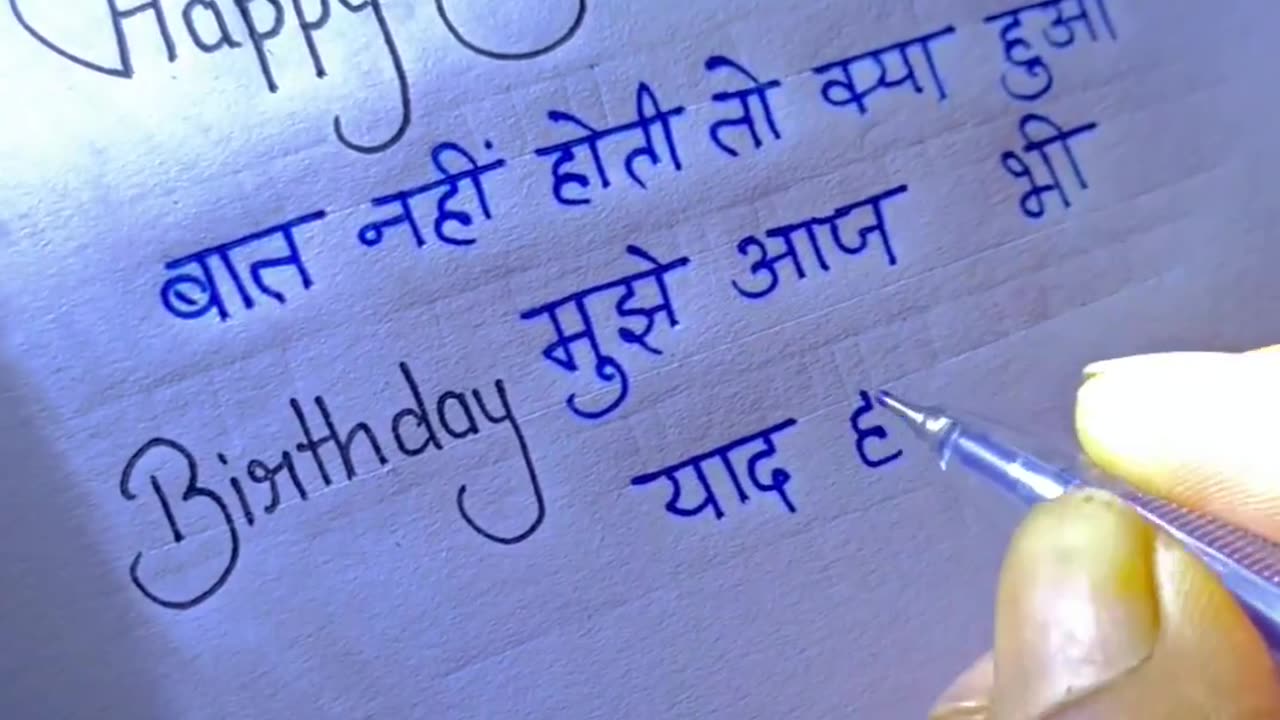 Happy
बात नहीं होती तो क्या हुआ
Birthday मुझे आज भी
याद ह